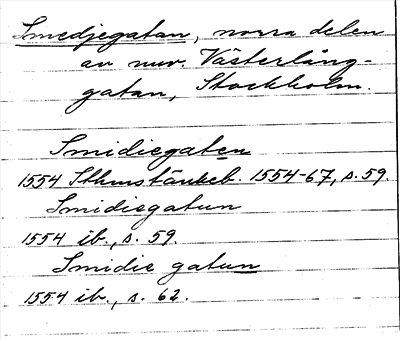 Smedjegatan, norra delen
av nuv. Västerlång-
gatan, Stockholm.
Smidiegaten
1554 Sthmstänkeb. 1554-67, s. 59.
Smidiegatun
1554 ib., s. 59.
Smidie gatun
1554 ib., s. 62.